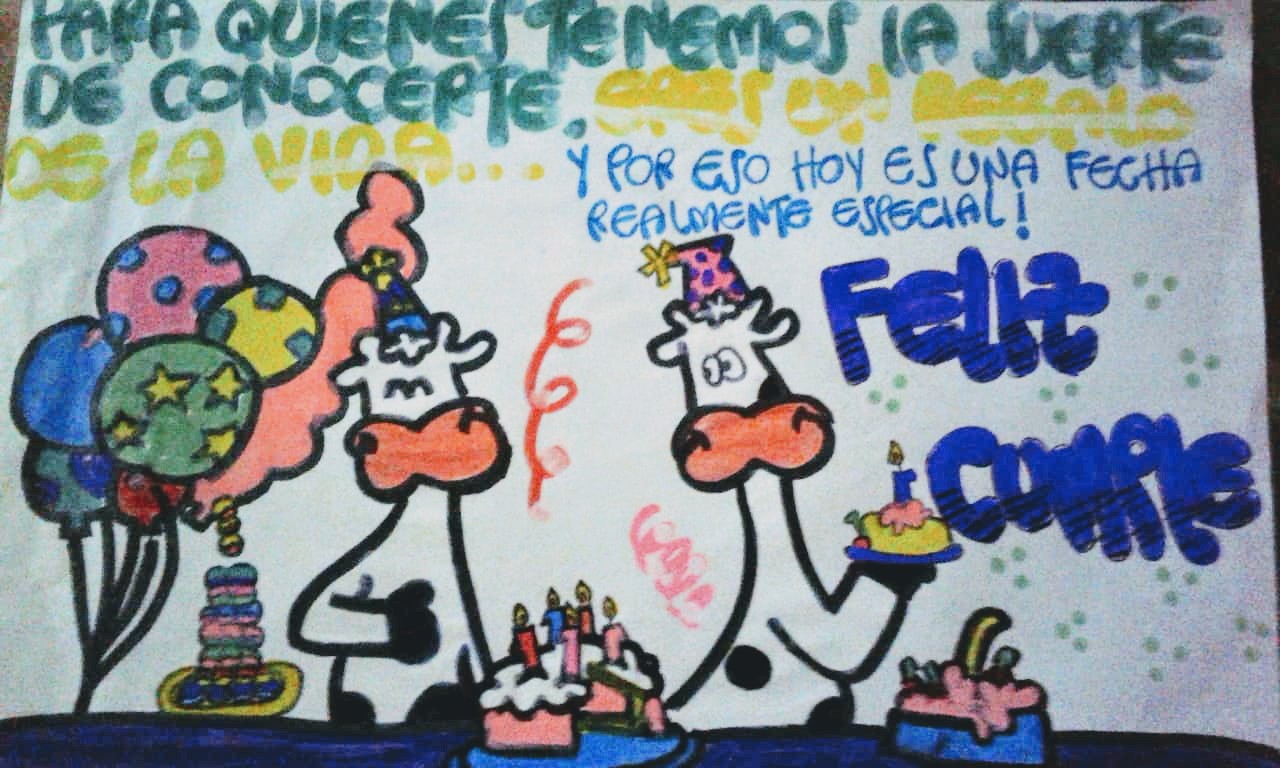 PARA QUIENES TENEMOS LA SUERTE
DE CONOCERTE, ERES UN REGALO
DE LA VIDA...
Y POR ESO HOY ES UNA FECHA
REALMENTE ESPECIAL!
Feliz
Cumple